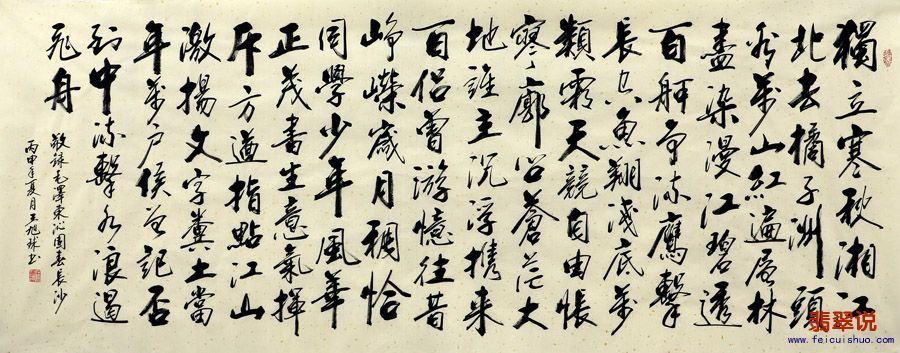 獨立寒秋湘江
北去橘子洲頭
看萬山紅遍層林
盡染漫江碧透
百舸爭流鷹擊
長空魚翔淺底萬
類霜天競自由悵
寥廓問蒼茫大
地誰主沉浮攜來
百侶曾游憶往昔
崢嶸歲月稠恰
同學少年風華
正茂書生意氣揮
斥方遒指點江山
激揚文字糞土當
年萬戶侯曾記否
到中流擊水浪遏
飛舟
敬錄毛澤東沁園春長沙
丙申年夏月王旭球書
翡翠说
www.feicuishuo.com